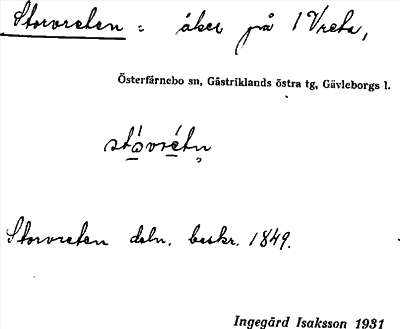 Storvreten = åker på 1 Vreta,
Österfärnebo sn, Gästriklands östra tg, Gävleborgs l.
stóvrétn
Storvreten deln. beskr. 1849.
Ingegärd Isaksson 1931